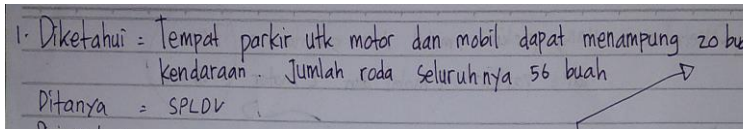 1. Diketahui = Tempat parkir utk motor dan mobil dapat menampung 20
kendaraan. Jumlah roda seluruhnya 56 buah
Ditanya = SPLDV